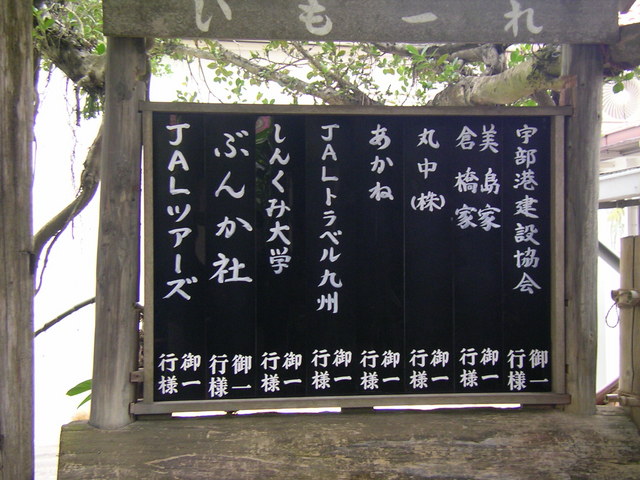 いもーれ
宇部港建設協会
御一
行様
美島家
倉橋家
御一
行様
丸中(株)
御一
行様
あかね
御一
行様
JALトラベル九州
御一
行様
しんくみ大学
御一
行様
ぶんか社
御一
行様
JALツアーズ
御一
行様